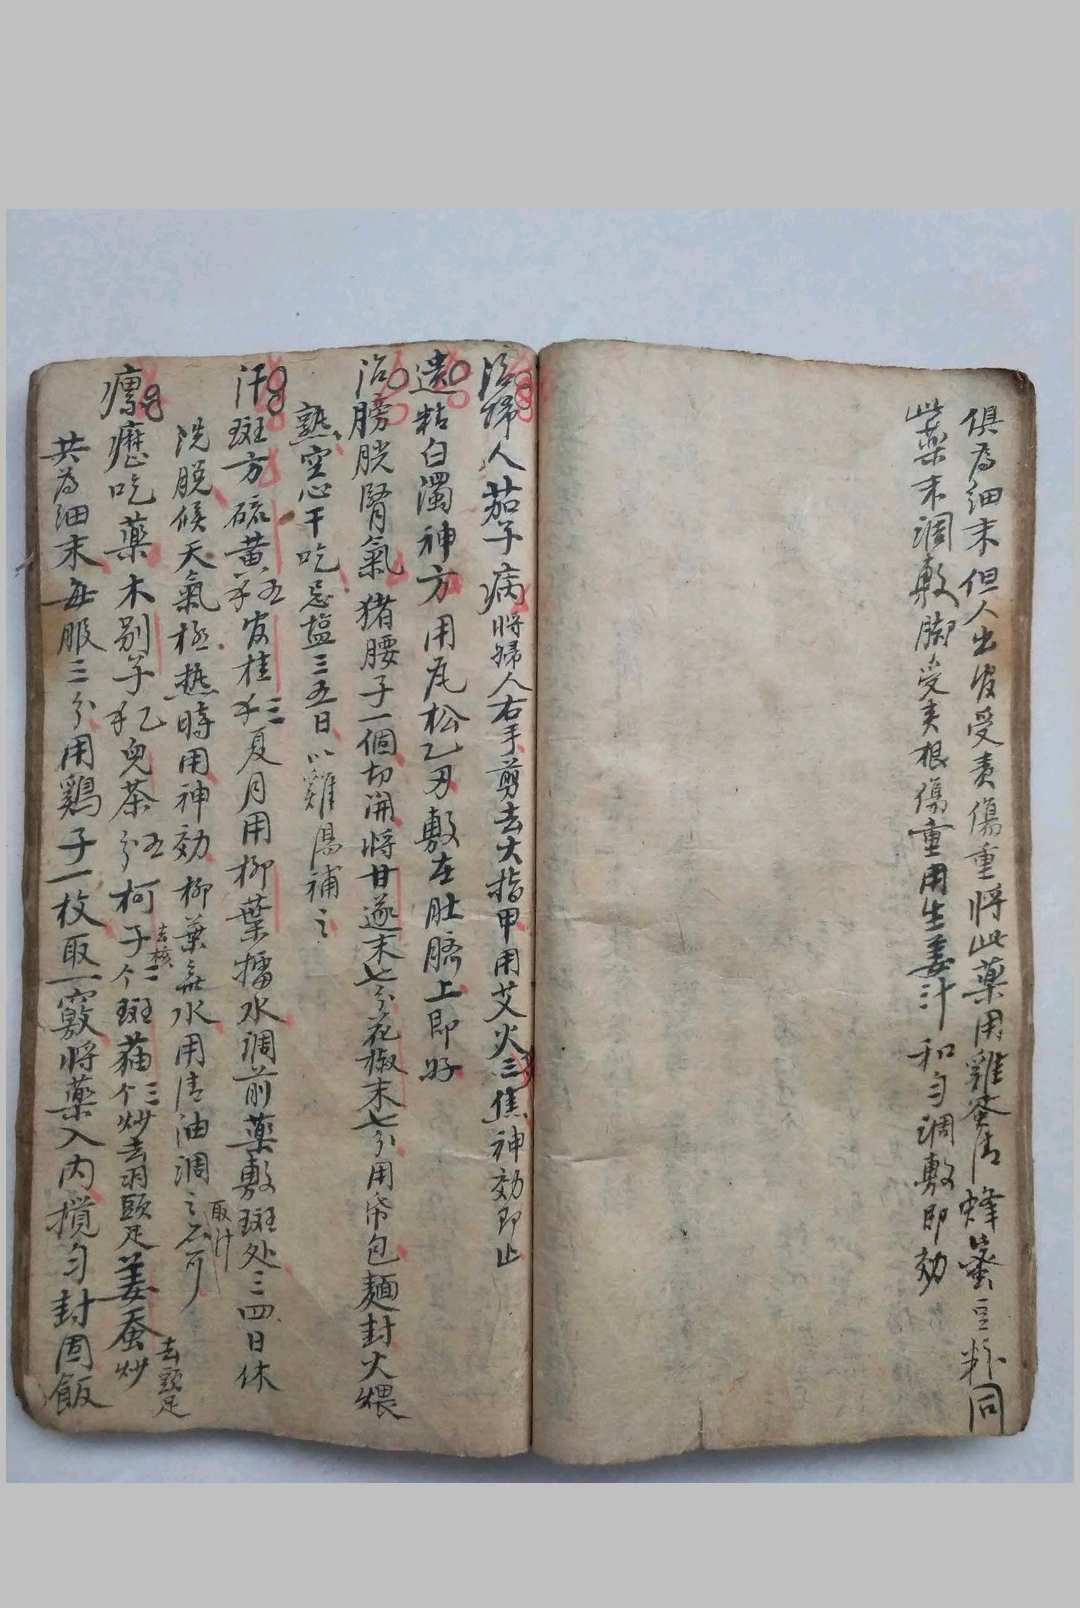 俱為細末但人出官受責傷重將此藥用雞蛋清蜂蜜豆粉同
此藥末調敷脚受夹根傷重用生姜汁和匀調敷即効
治婦人茄子病將婦人右手剪去大指甲用艾火三焦神効即止
遺粘白濁神方用瓦松乙刃敷在肚臍上即好
治膀胱腎氣猪腰子一個切開將甘遂末七分花椒末七分用帋包麵封火煨
熟空心干吃忌塩三五日以雞湯補之
汗斑方硫黄五官桂三夏月用柳葉擂水調前藥敷斑处三四日休
洗脱候天氣極热時用神効柳葉無水用清油調之亦可
取汁
瘰癧吃藥木别子乙兒茶五分柯子二个斑猫三个炒去羽頭足姜蚕炒
去核
去頭足
共為細末每服三分用鷄子一枚取一竅將藥入内攪匀封固飯